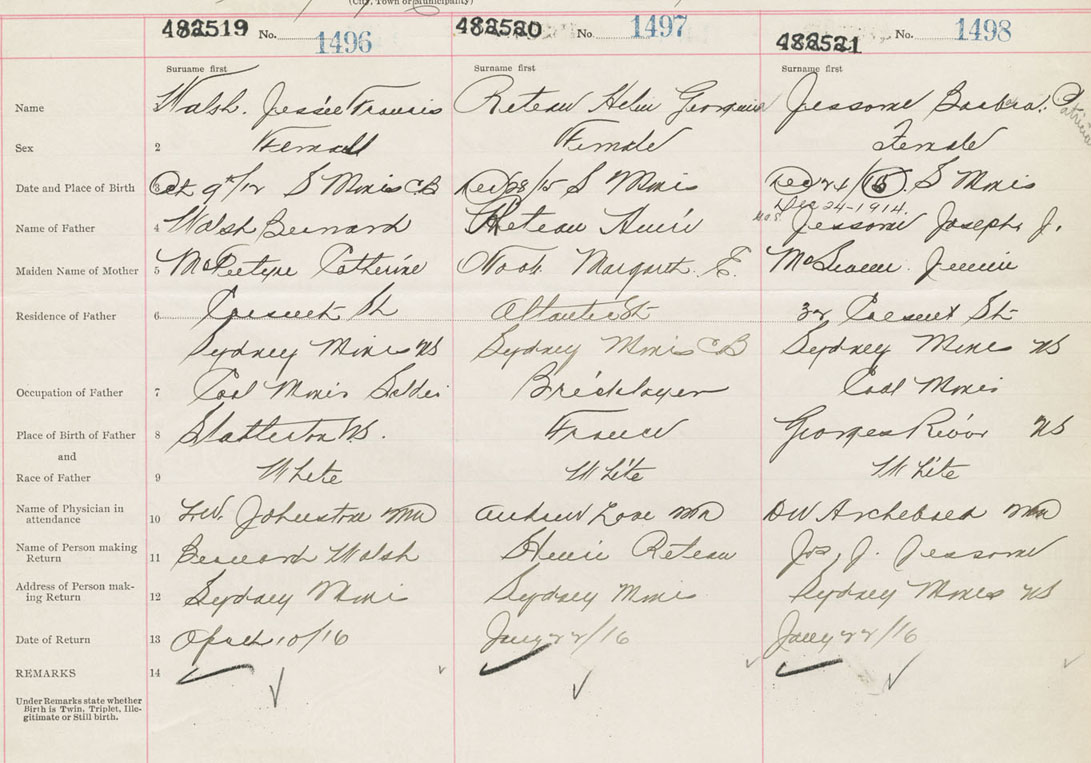 (City, Town or Municipality)
482519 No. 1496 482520 No 1497 482521 No. 1498
Surname first Surname first Surname first
Name Walsh. Jessie Francis Reteau Helen Jessome Barbara. Patricia
Sex 2 Female Female Female
Date and Place of Birth 3 Oct 9th/12 S Mines C.B Dec 28/15 S Mines Dec 24/15 S Mines
Dec 24-1914.
Name of Father 4 Walsh Bernard Reteau Henri Jessome Joseph, J.
Maiden Name of Mother 5 Catherine Margaret E. Jennie
Residence of Father 6 Crescent St Atlantic St 32 Crescent St
Sydney Mines NS Sydney Mines C B Sydney Mines NS
Occupation of Father 7 Coal Mines Bricklayer Coal Mines
Place of Birth of Father 8 NS. France Georges River NS
and
Race of Father 9 White White White
Name of Physician in
attendance 10 Johnstone MD Andrew Love MD DW Archibald MD
Name of Person making
Return 11 Bernard Walsh Henri Reteau Jos, J. Jessome
Address of Person mak-
ing Return 12 Sydney Mines Sydney Mines Sydney Mines NS
Date of Return 13 April 10/16 Jany 22/16 Jany 22/16
REMARKS 14
Under Remarks state whether
Birth is Twin, Triplet, Ille-
gitimate or Still birth.